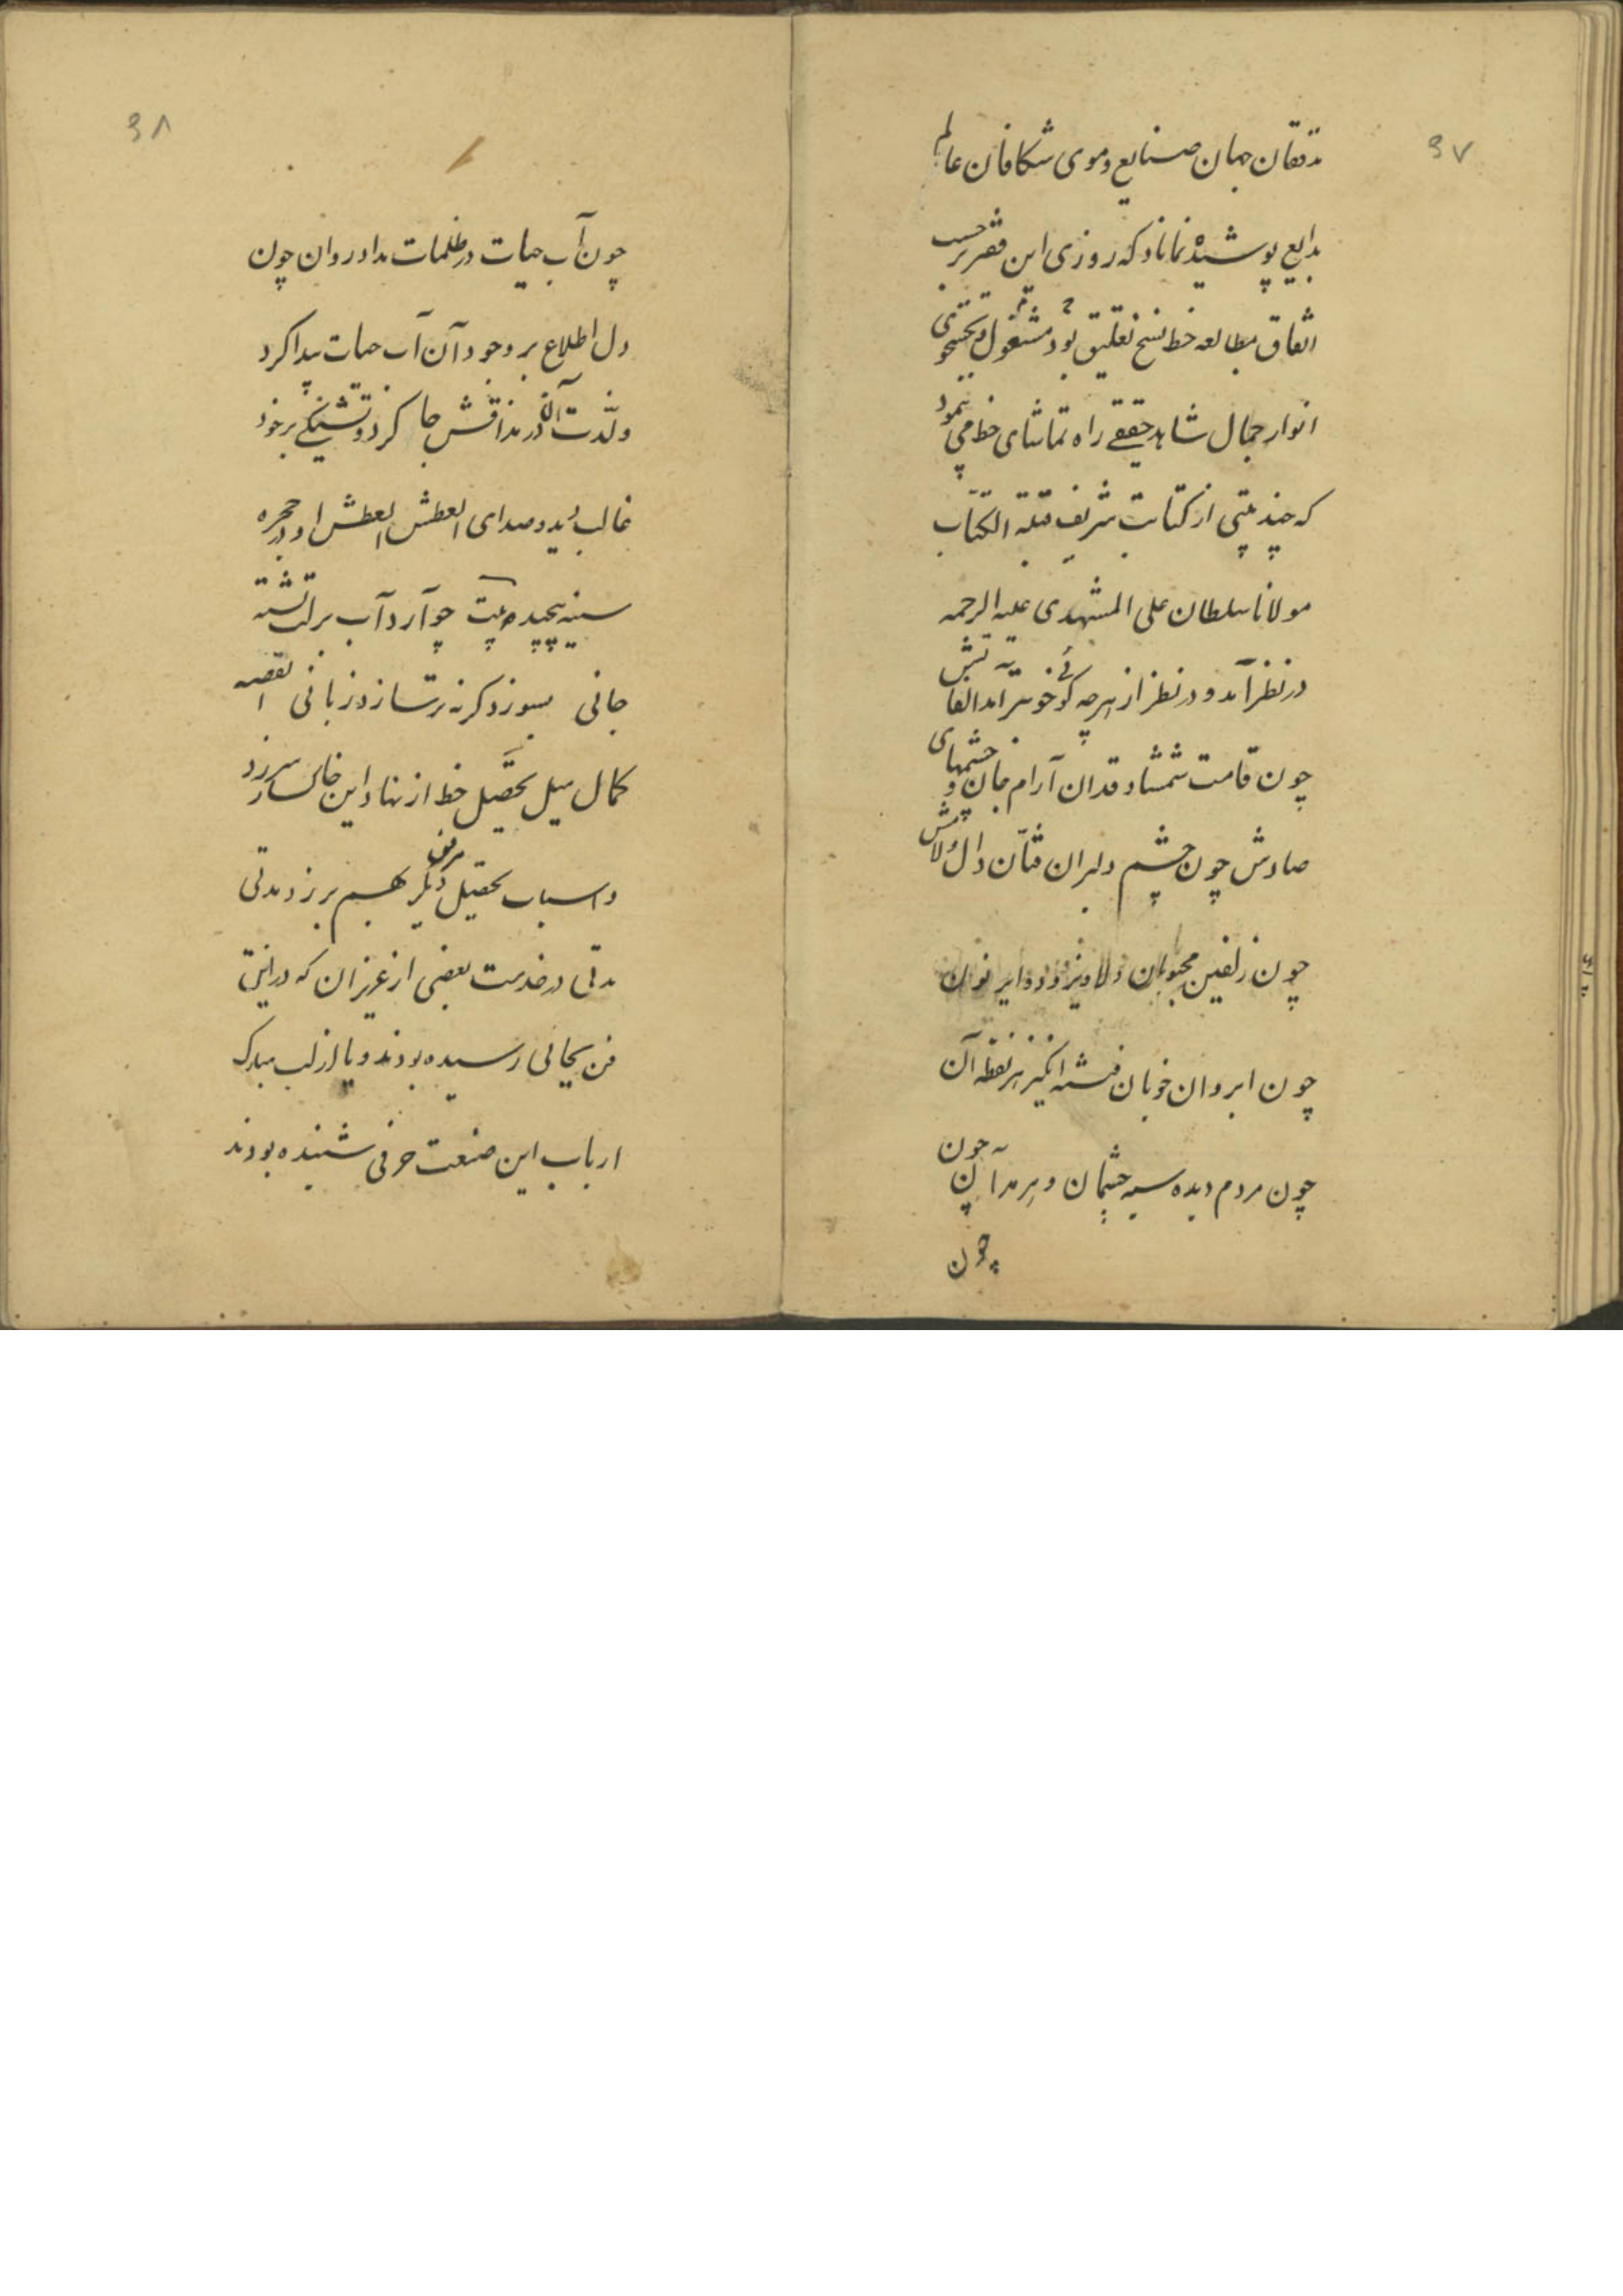 ۹۷
مدققان جهان صنایع و موی شکافان عالم
بدایع پوشیده نماناد که روزی این فقیر بر حسب
اتفاق بمطالعه خط نسخ تعلیق بود مشغول و بجستجوی
انوار جمال شاهد حقیقی راه تماشای خط می پیمود
که چند بیتی از کتابت شریف قبلة الکتاب
مولانا سلطان علی المشهدی علیه الرحمه
در نظر آمد و در نظر از هرچه گوئی خوبتر آمد الفاتش
چون قامت شمشاد قدان آرام جان و چشمهای
صادش چون چشم دلبران فتان دال و لامش
چون زلفین محبوبان دلاویز و دوایر نون
چون ابروان خوبان فتنه انگیز هر نقطه آن
چون مردم دیده سیه چشمان و هر مد آن چون
چون
۹۸
چون آب حیات در ظلمات مداد روان چون
دل اطلاع بر وجود آن آب حیات پیدا کرد
و لذت آن در مذاقش جا کرد و تشنگی بر خود
غالب دید و صدای العطش العطش او در حجره
سینه پیچید بیت چو آرد آب بر لب تشنه
جانی بسوزد گر نه تر سازد زبانی القصه
کمال میل تحصیل خط از نهاد این خاکسار سر زد
و اسباب تحصیل دیگر بهم بر زد مدتی
مدتی در خدمت بعضی از عزیزان که در این
فن بجائی رسیده بودند و یا از لب مبارک
ارباب این صنعت حرفی شنیده بودند